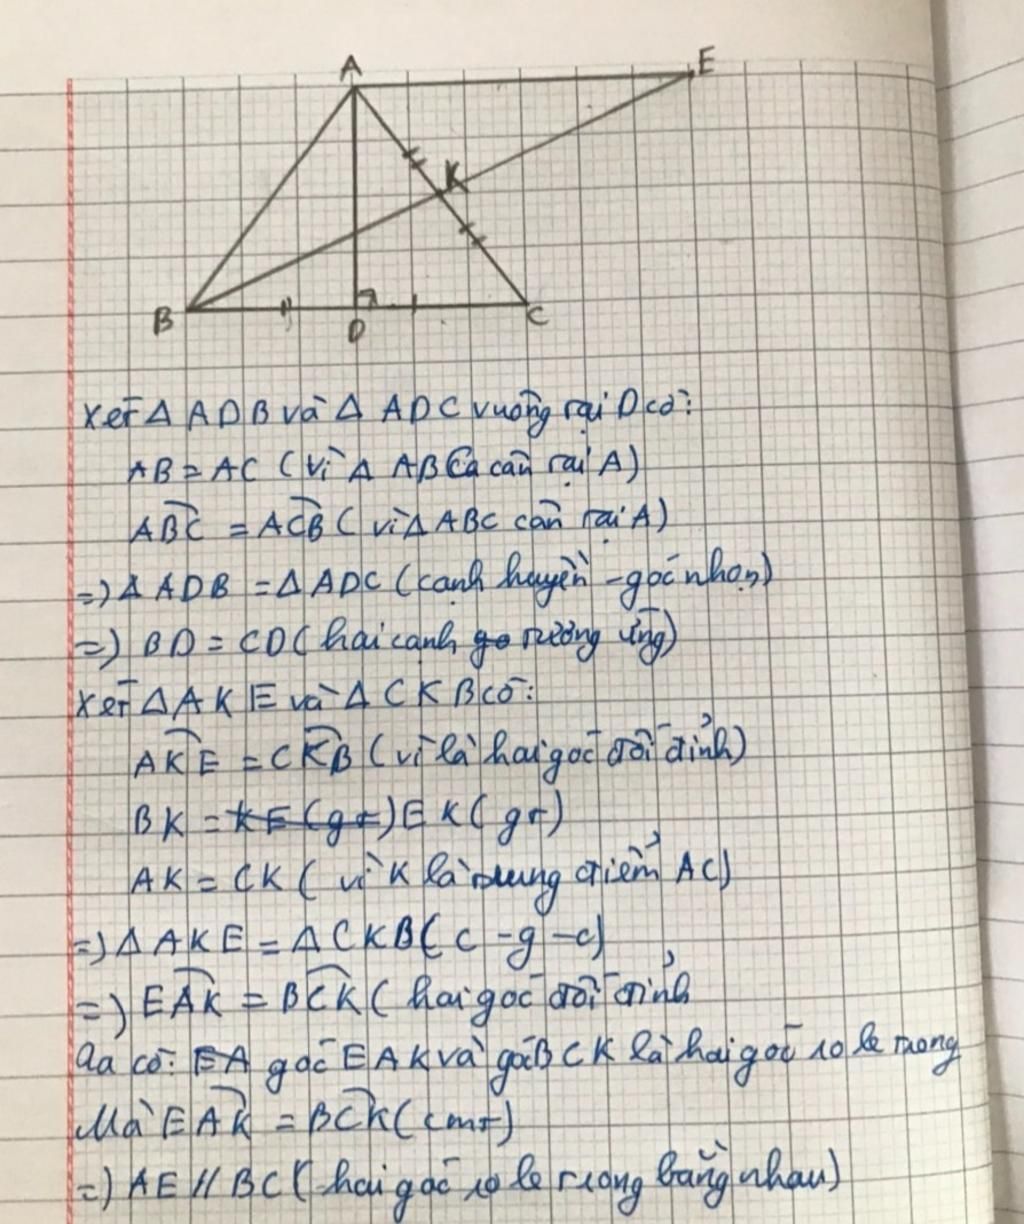 A
E
K
B
D
C
Xét Δ ADB và Δ ADC vuông tại D có:
AB = AC (vì Δ ABC cân tại A)
ABC = ACB (vì Δ ABC cân tại A)
=) Δ ADB = Δ ADC (cạnh huyền - góc nhọn)
=) BD = CD (hai cạnh tương ứng)
Xét Δ AKE và Δ CKB có:
AKE = CKB (vì là hai góc đối đỉnh)
BK = EK (gt)
AK = CK (vì K là trung điểm AC)
=) Δ AKE = Δ CKB (c - g - c)
=) EAK = BCK (hai góc đối đỉnh
Ta có: góc EAK và góc BCK là hai góc so le trong
Mà EAK = BCK (cmt)
=) AE // BC (hai góc so le trong bằng nhau)